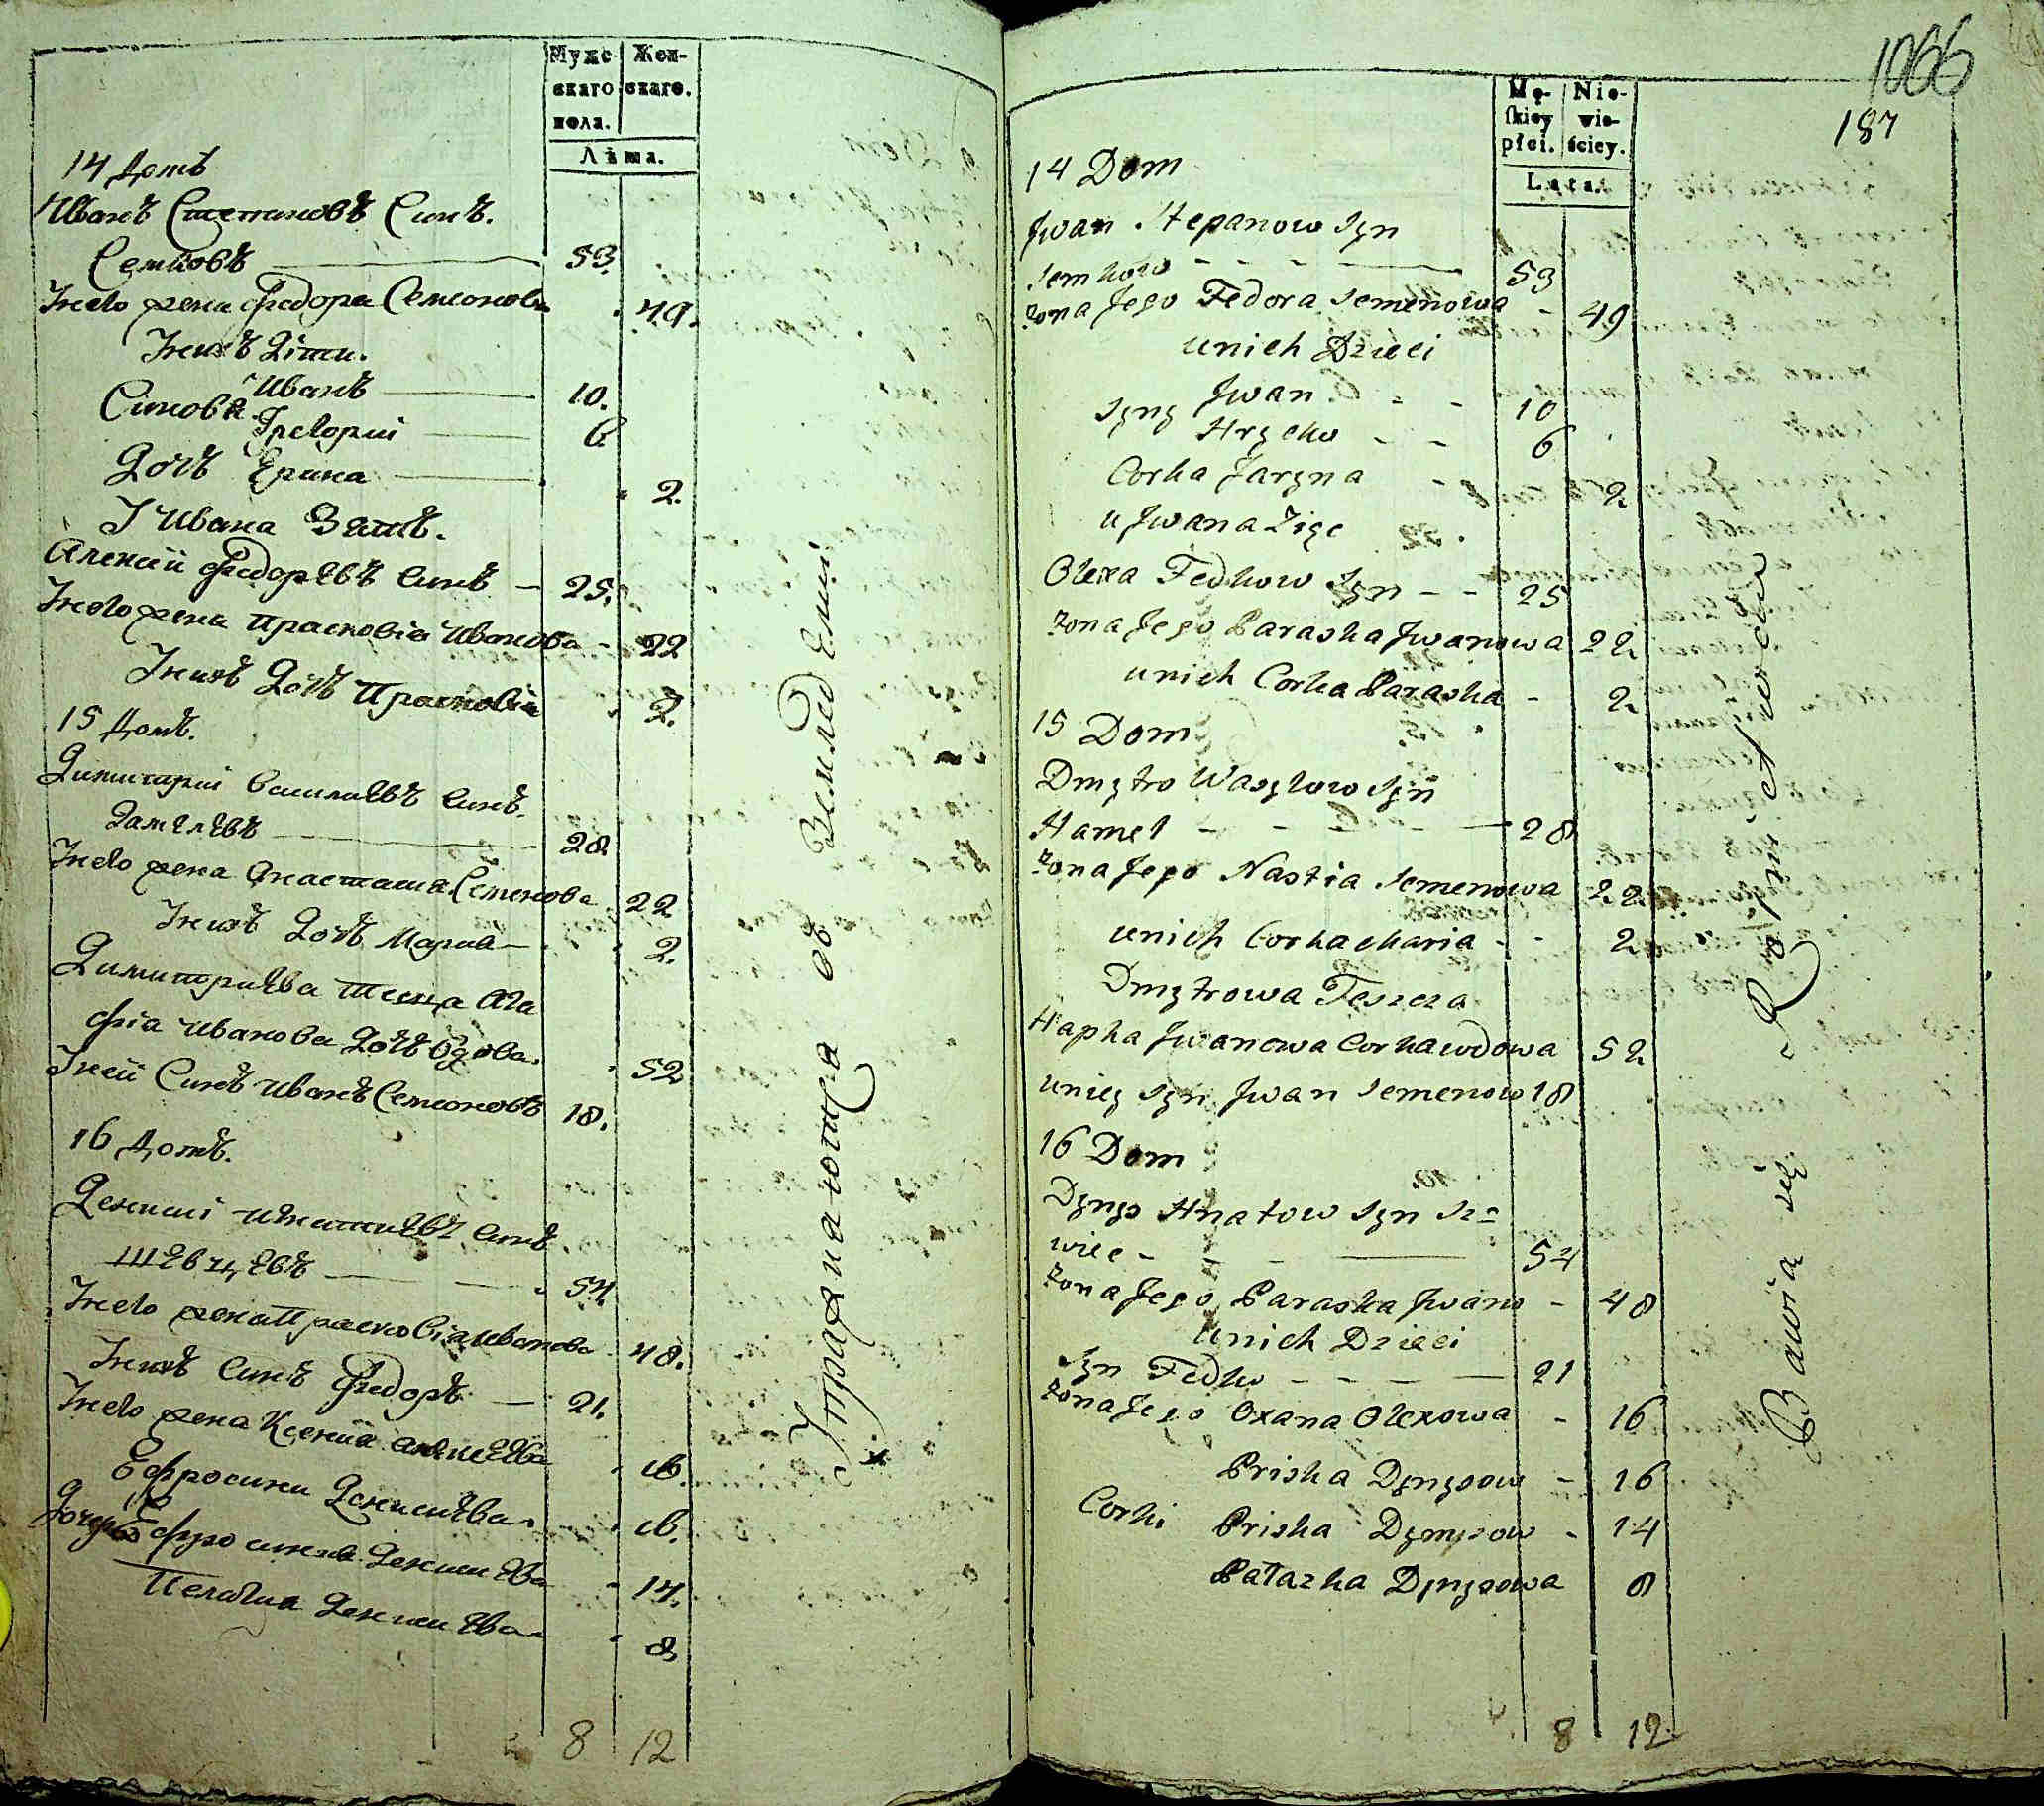 Мужс-
скаго
пола.
Жен-
скаго.
Лѣта.
14 Домъ
Иванъ Степановъ Синъ.
Семковъ 53.
Унего жена Федора Семionова 49.
Унихъ Дѣти.
Синовя Иванъ 10.
Грегорий 6
Дочъ Ерина 2.
У Ивана Зять.
Алексій Федоревъ Синъ 25.
Унего жена Прасковія Иванова 22
Унихъ Дочъ Прасковія 2.
15 Домъ.
Димитрий Василіевъ Синъ.
Гамелевъ 28
Унего жена Анастасия Семенова 22
Унихъ Дочъ Мария 2.
Димитриева Теща Ага
фіа Иванова Дочъ Вдова. 52
Уней Синъ Иванъ Семioновъ 18.
16 Домъ.
Денисий Игнатиевъ Синъ
Шевцевъ 54.
Унего жена Прасковіа Иванова 48.
Унихъ Синъ Федоръ 21.
Унего жена Ксения Алексеева 16.
Ефросини Денисиева. 16.
Дочери Ефросиния Денисиева 14.
Пелагия Денисиева 8
8 12
Упражнаютца об Земледелий
1066
187
Mę-
skiey
płci.
Nie-
wie-
ściey.
Lata.
14 Dom
Jwan Stepanow Syn
Semkow 53
zona Jego Fedora Semenowa 49
unich Dzieci
Syny Jwan 10
Hrycko 6
Corka Jaryna 2
u Jwana Zięc
Olexa Fedkow Syn 25
zona Jego Paraska Jwanowa 22
unich Corka Paraska 2
15 Dom
Dmytro Wasylow Syn
Hamel 28
zona Jego Nastia Semenowa 22
unich Corka Maria 2
Dmytrowa Teszcza
Hapka Jwanowa Corka wdowa 52
uniey Syn Jwan Semenow 18
16 Dom
Dynys Hnatow Syn Sz=
wiec 54
zona Jego Paraska Jwano 48
unich Dzieci
Syn Fedko 21
zona Jego Oxana Olexowa 16
Priska Dynysow 16
Corki Priska Dynysow 14
Pałazka Dynysowa 8
8 12
Bawią się Rolnictwem